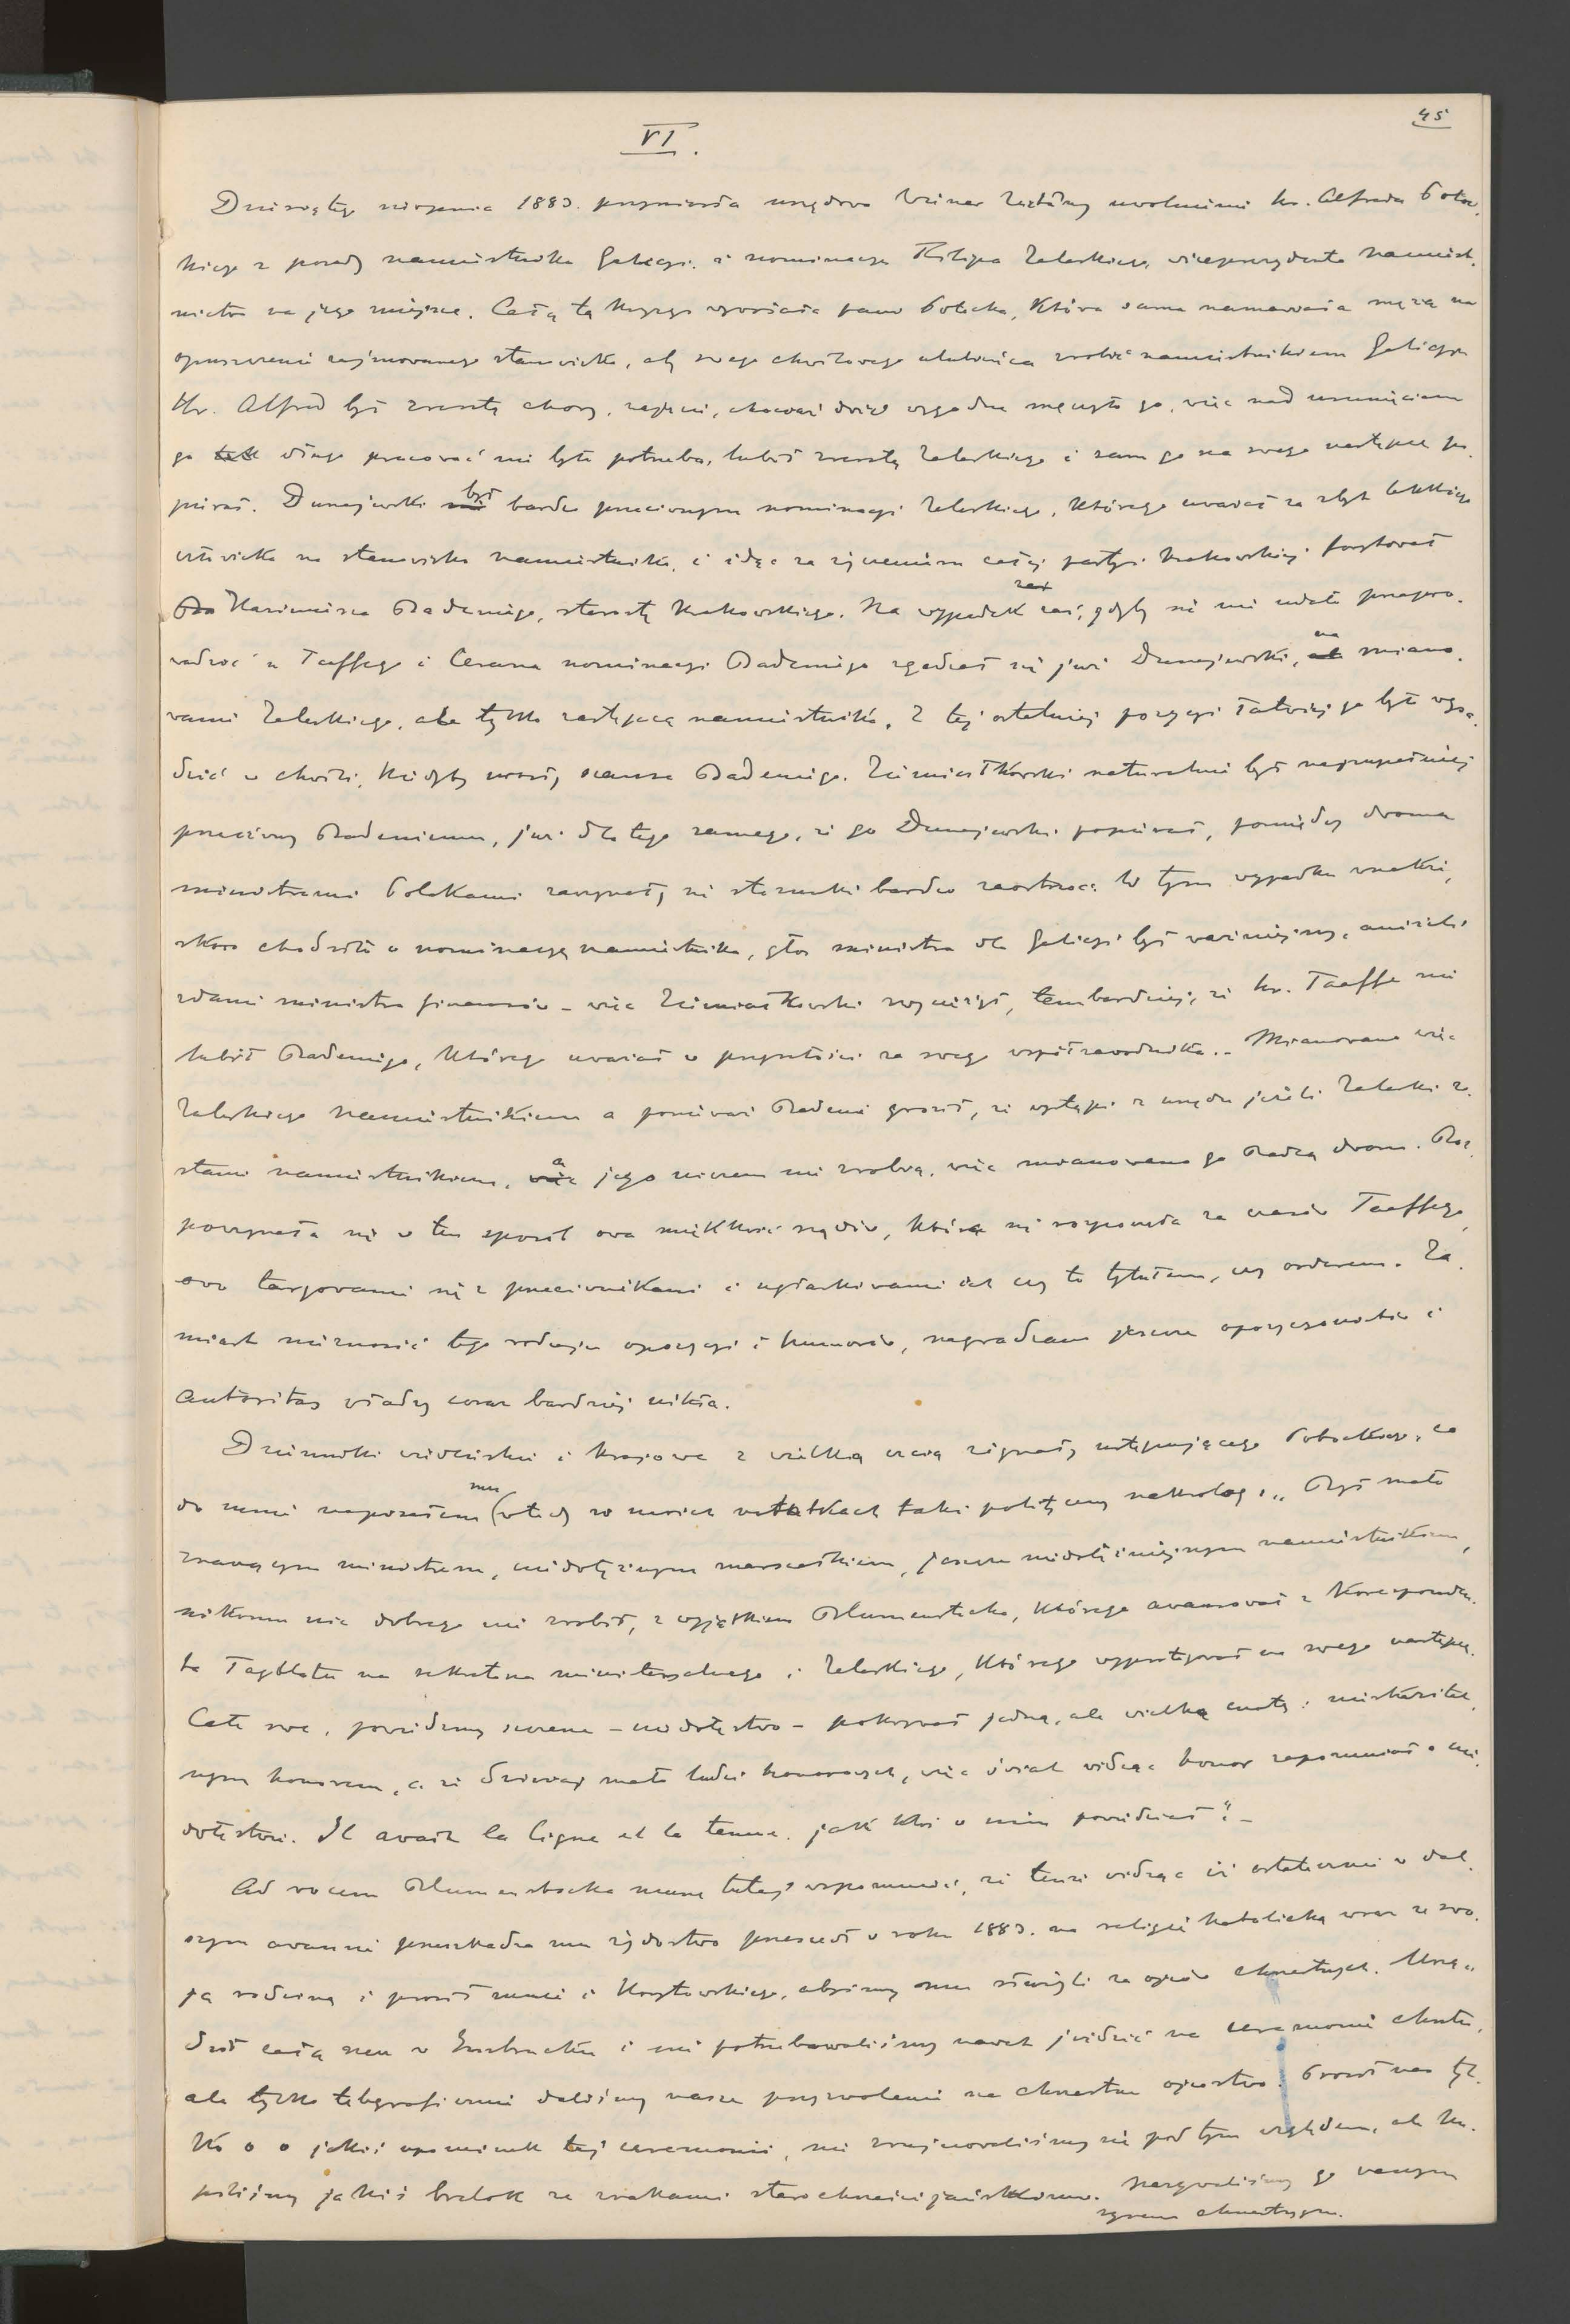 45
VI.
Dziesiątego sierpnia 1883. przyniosła urzędowa Wiener Zeitung uwolnienie hr. Alfreda Potoc-
kiego z posady namiestnika Galicyi i nominacyę Filipa Zaleskiego, wiceprezydenta namiest-
nictwa na jego miejsce. Całą tę kryzys wywołała pani Potocka, która sama namawiała męża na
opuszczenie zajmowanego stanowiska, aby swego chwilowego ulubieńca zrobić namiestnikiem Galicyi
Hr. Alfred był zresztą chory, zajęcie, chociaż dość wygodne męczyło go, więc nad usunięciem
go tak długo pracować nie było potrzeba, lubił zresztą Zaleskiego i sam go na swego następcę po-
pierał. Dunajewski był bardzo przeciwnym nominacyi Zaleskiego, którego uważał za zbyt lekkiego
człowieka na stanowisko namiestnika, i idąc za życzeniem całej partyi krakowskiej forytował
Kazimierza Badeniego, starostę krakowskiego. Na wypadek zaś, gdyby się nie udało przepro-
wadzić u Taaffego i Cesarza nominacyi Badeniego zgadzał się już Dunajewski, na miano-
wanie Zaleskiego, ale tylko zastępcą namiestnika. Z tej ostatniej pozycyi łatwiej go było wysa-
dzić w chwili, kiedyby urosły szanse Badeniego. Ziemiałkowski naturalnie był najzupełniej
przeciwny Badeniemu, już dla tego samego, że go Dunajewski popierał, pomiędzy dwoma
ministrami Polakami zaczynały się stosunki bardzo zaostrzać. W tym wypadku wszakże,
skoro chodziło o nominacyę namiestnika, głos ministra dla Galicyi był ważniejszy, aniżeli
zdanie ministra finansów – więc Ziemiałkowski zwyciężył, tembardziej, że hr. Taaffe nie
lubił Badeniego, którego uważał w przyszłości za swego współzawodnika. Mianowano więc
Zaleskiego namiestnikiem a ponieważ Badeni groził, że wystąpi z urzędu jeżeli Zaleski zo-
stanie namiestnikiem, a jego niczem nie zrobią, więc mianowano go Radcą dworu. Roz-
poczynała się w ten sposób owa miękkość rządów, która się rozpoczęła za czasów Taaffego,
owo targowanie się z przeciwnikami i ugłaskiwanie ich czy to tytułem, czy orderem. Za-
miast nie znosić tego rodzaju opozycyi i humorów, nagradzano jeszcze opozycyonistów i
autoritas władzy coraz bardziej nikła.
Dzienniki wiedeńskie i krajowe z wielką czcią żegnały ustępującego Potockiego, co
do mnie napisałem mu (wtedy w moich notatkach taki polityczny nekrolog: „Był mało
znaczącym ministrem, niedołężnym marszałkiem, jeszcze niedołężniejszym namiestnikiem,
nikomu nic dobrego nie zrobił, z wyjątkiem Blumenstocka, którego awansował z korespenden-
ta Tagblattu na sekretarza ministeryalnego i Zaleskiego, którego wyprotegował na swego następcę.
Całe swe, powiedzmy szczerze – niedołęstwo – pokrywał jedną, ale wielką cnotą: nieskazitel-
nym honorem, a że dzisiaj mało ludzi honorowych, więc świat widząc honor zapomniał o nie-
dołęstwie. Il avait la ligne et la tenue, jak ktoś o nim powiedział". –
Ad vocem Blumenstocka muszę tutaj wspomnieć, że tenże widząc iż ostatecznie w dal-
szym awansie przeszkadza mu żydostwo przeszedł w roku 1883. na religię katolicką wraz ze swo-
ją rodziną i prosił mnie i Korytowskiego, abyśmy mu służyli za ojców chrzestnych. Urzą-
dził całą rzecz w Insbrucku i nie potrzebowaliśmy nawet jeździć na ceremonię chrztu,
ale tylko telegraficznie daliśmy nasze przyzwolenie na chrzestne ojcostwo. Prosił nas tyl-
ko o o jakiś upominek tej ceremonii, nie zrujnowaliśmy się pod tym względem, ale ku-
piliśmy jakiś brelok ze znakami starochrześcijańskiemi. Nazywaliśmy go naszym
synem chrzestnym.